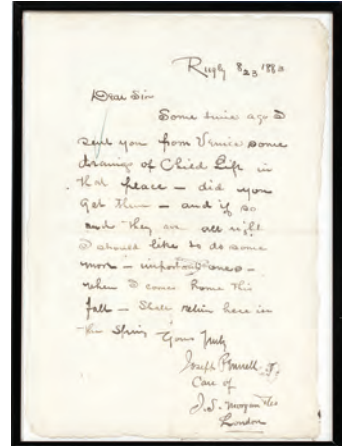 Rugby 8 23 1883
Dear Sir
Some time ago I
sent you from Venice some
drawings of Child Life in
that place — did you
get them — and if so
and they are all right
I should like to do some
more — important ones —
when I come home this
fall — Shall return here in
the Spring Yours Truly
Joseph Pennell
Care of
J. S. Morgan
London